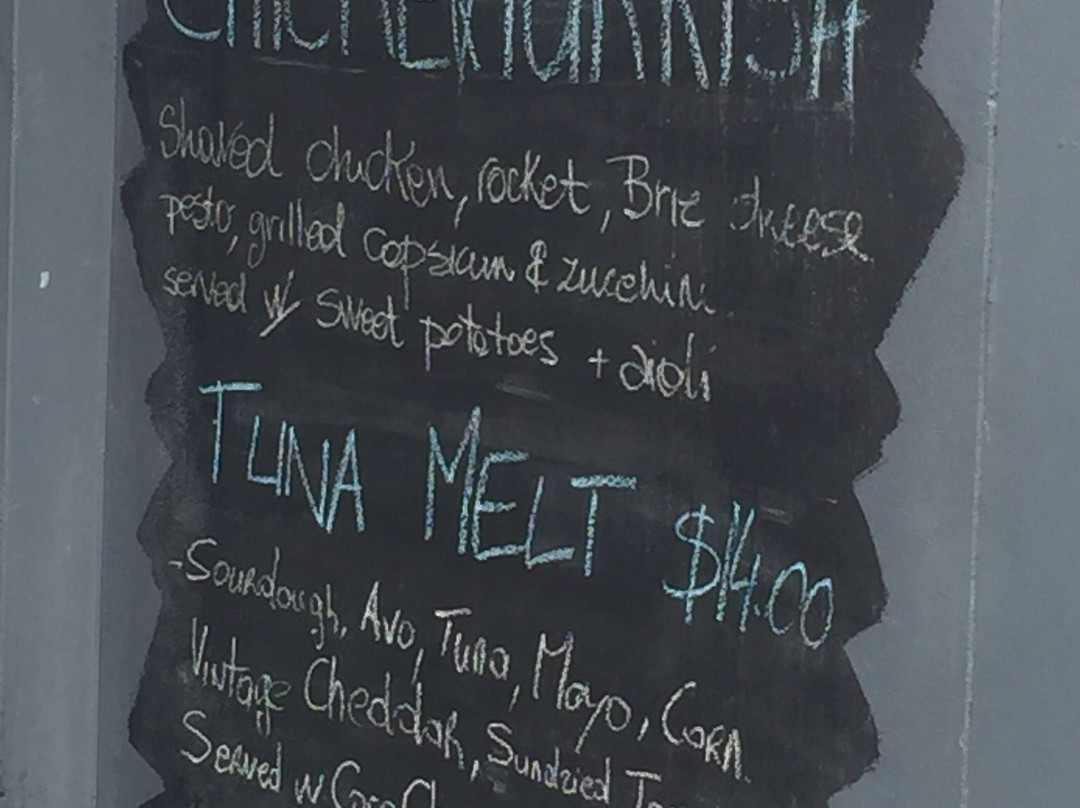 CHICKEN TURKISH
Shaved chicken, rocket, Brie cheese
pesto, grilled capsicum & zucchini
served w/ sweet potatoes + aioli
TUNA MELT $14.00
-Sourdough, Avo, Tuna, Mayo, Corn
Vintage Cheddar, Sundried
Served w